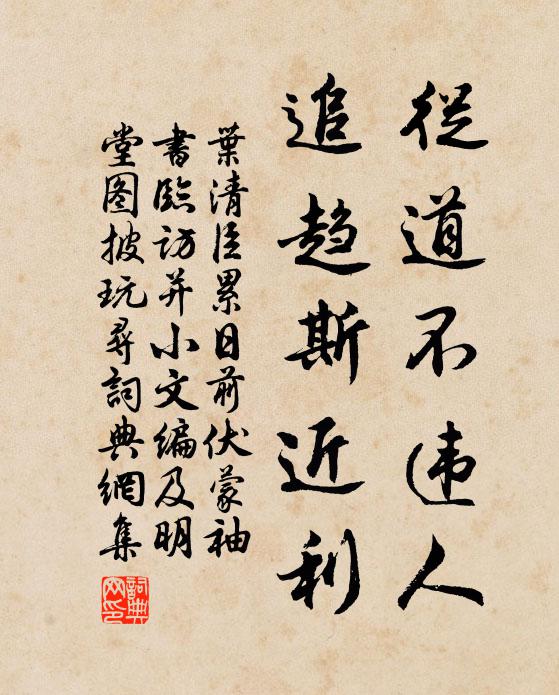 從道不违人
追趋斯近利
葉清臣累日前伏蒙袖
書臨访并小文编及明
堂图披玩尋詞典網集
詞典网印